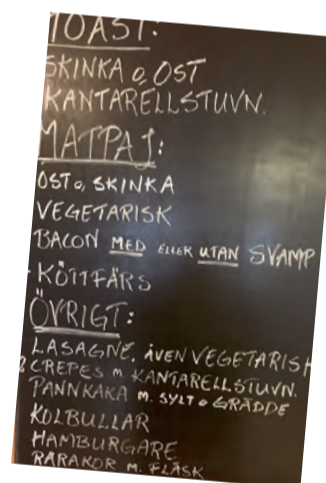 TOAST:
SKINKA o OST
KANTARELLSTUVN.
MATPAJ:
OST o, SKINKA
VEGETARISK
BACON MED ELLER UTAN SVAMP
KÖTTFÄRS
ÖVRIGT:
LASAGNE, ÄVEN VEGETARISK
CREPES M. KANTARELLSTUVN.
PANNKAKA M. SYLT o GRÄDDE
KOLBULLAR
HAMBURGARE
RÅRAKOR M. FLÄSK